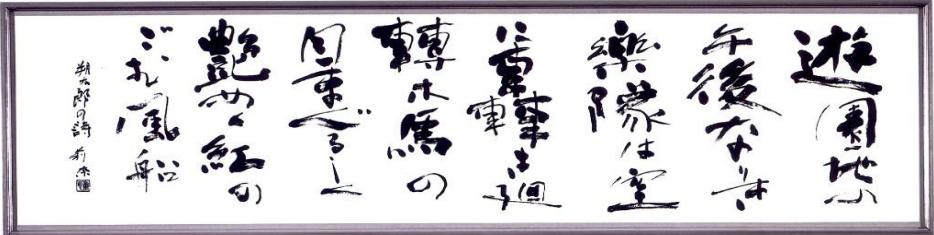 遊園地の
午後なりき
樂隊は空
に轟き廻
轉木馬の
目まぐるしく
艶めく紅の
ごむ風船
朔太郎の詩